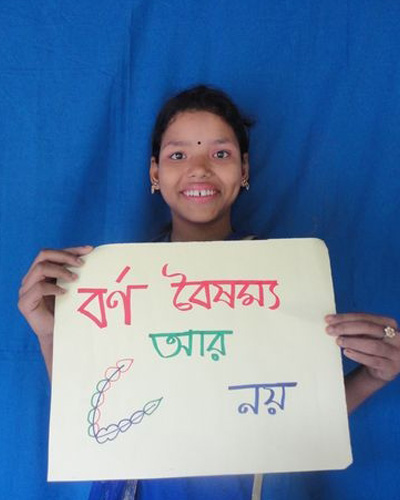 বর্ণ বৈষম্য
আর
নয়